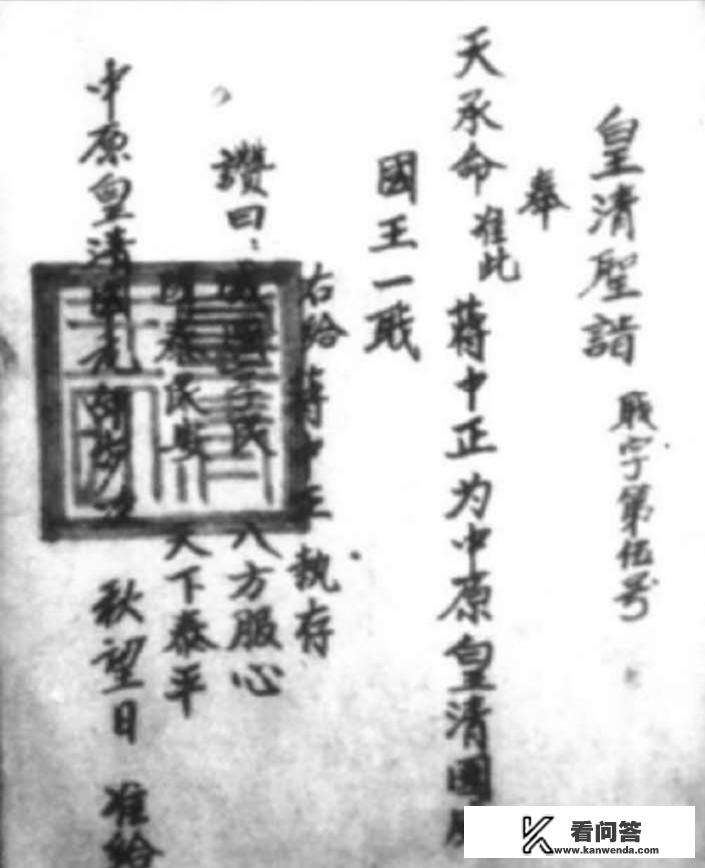 皇清聖詣 戝字第伍号
奉
天承命准此 蔣中正为中原皇清國
國王一戝
右给蔣中正執存
讚曰：民 八方服心
國泰民安 天下泰平
中原皇清國元 秋望日 准給
看问答
www.kanwenda.com